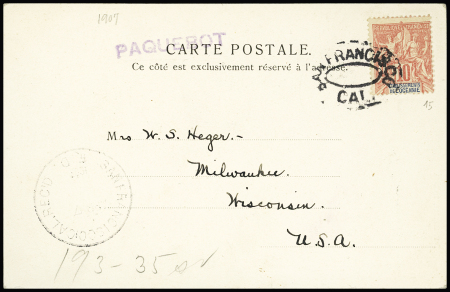 1907
PAQUEBOT
CARTE POSTALE.
Ce côté est exclusivement réservé à l'adresse.
SAN FRANCISCO
CAL.
10
ETABLISSEMENTS
DE L'OCÉANIE
15
Mrs W. S. Heger.-
Milwaukee.
Wisconsin.
U.S.A.
193-35